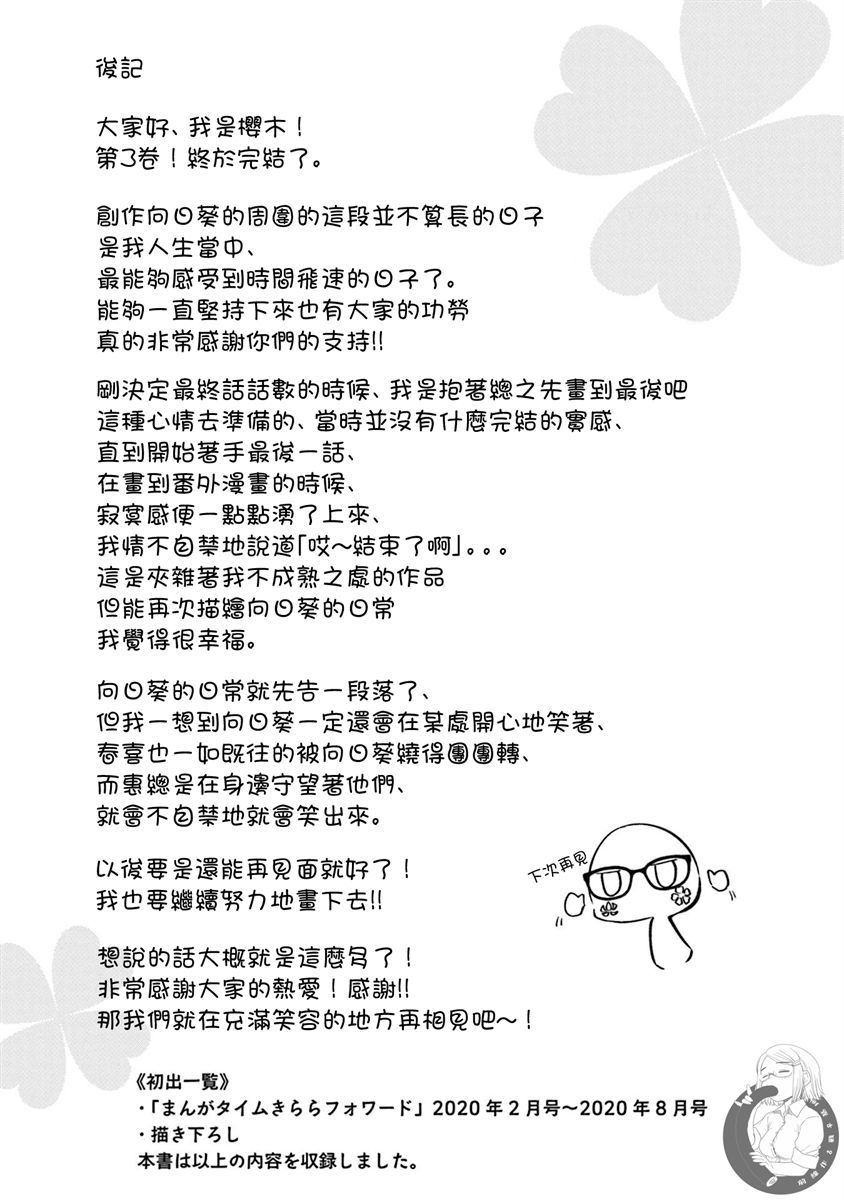 後記
大家好、我是櫻木！
第3卷！終於完結了。
創作向日葵的周圍的這段並不算長的日子
是我人生當中、
最能夠感受到時間飛速的日子了。
能夠一直堅持下來也有大家的功勞
真的非常感謝你們的支持!!
剛決定最終話話數的時候、我是抱著總之先畫到最後吧
這種心情去準備的、當時並沒有什麼完結的實感、
直到開始著手最後一話、
在畫到番外漫畫的時候、
寂寞感便一點點湧了上來、
我情不自禁地說道「哎～結束了啊」。。。
這是夾雜著我不成熟之處的作品
但能再次描繪向日葵的日常
我覺得很幸福。
向日葵的日常就先告一段落了、
但我一想到向日葵一定還會在某處開心地笑著、
春喜也一如既往的被向日葵繞得團團轉、
而惠總是在身邊守望著他們、
就會不自禁地就會笑出來。
以後要是還能再見面就好了！
我也要繼續努力地畫下去!!
下次再見
想說的話大概就是這麼多了！
非常感謝大家的熱愛！感謝!!
那我們就在充滿笑容的地方再相見吧～！
《初出一覧》
・「まんがタイムきららフォワード」2020年2月号～2020年8月号
・描き下ろし
本書は以上の内容を収録しました。